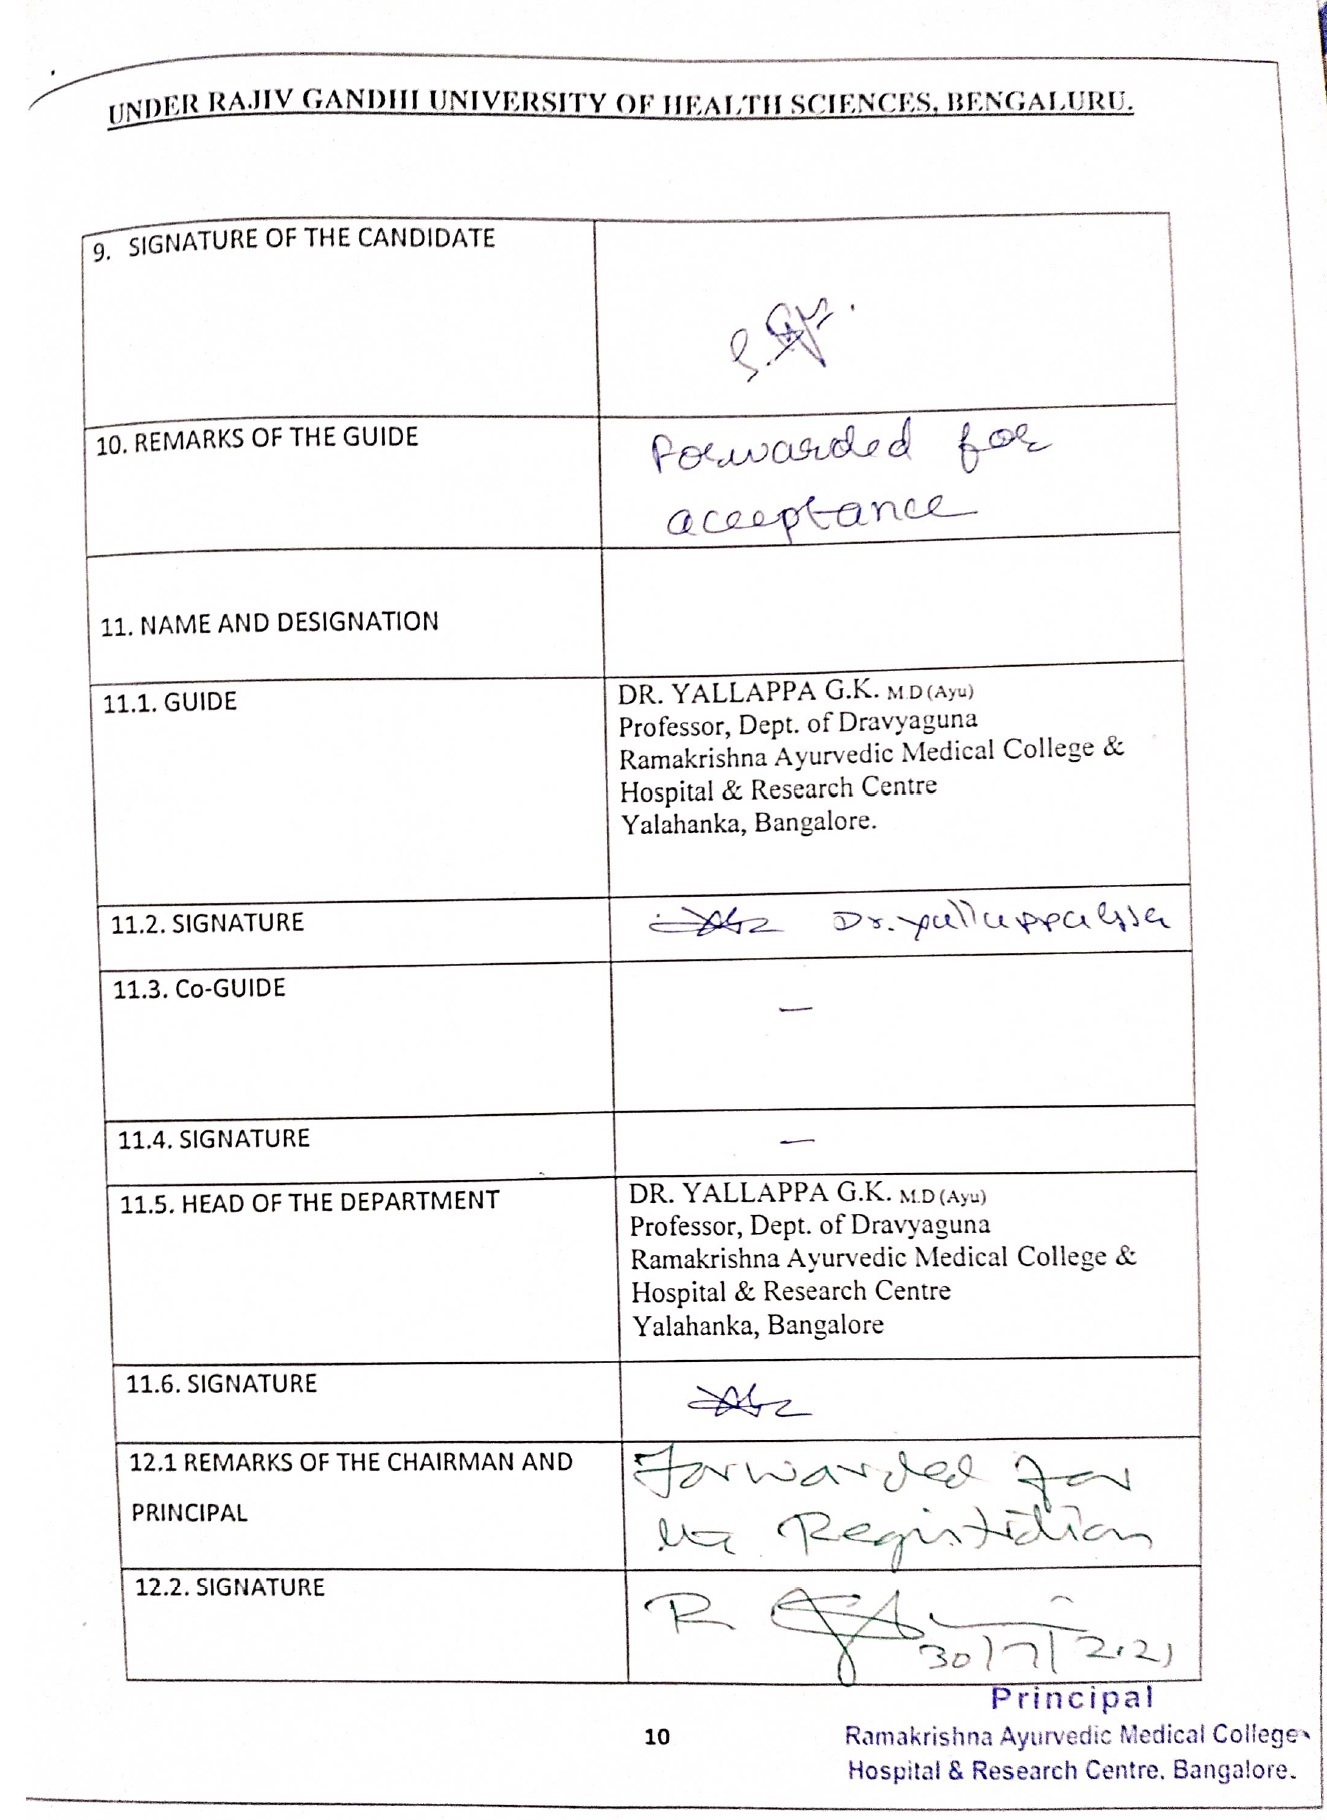 UNDER RAJIV GANDHI UNIVERSITY OF HEALTH SCIENCES, BENGALURU.
9. SIGNATURE OF THE CANDIDATE
10. REMARKS OF THE GUIDE
Forwarded for
acceptance
11. NAME AND DESIGNATION
11.1. GUIDE
DR. YALLAPPA G.K. M.D (Ayu)
Professor, Dept. of Dravyaguna
Ramakrishna Ayurvedic Medical College &
Hospital & Research Centre
Yalahanka, Bangalore.
11.2. SIGNATURE
Dr.
11.3. Co-GUIDE
—
11.4. SIGNATURE
—
11.5. HEAD OF THE DEPARTMENT
DR. YALLAPPA G.K. M.D (Ayu)
Professor, Dept. of Dravyaguna
Ramakrishna Ayurvedic Medical College &
Hospital & Research Centre
Yalahanka, Bangalore
11.6. SIGNATURE
12.1 REMARKS OF THE CHAIRMAN AND
PRINCIPAL
Forwarded for
the Registration
12.2. SIGNATURE
30/7/2021
Principal
Ramakrishna Ayurvedic Medical College
Hospital & Research Centre. Bangalore.
10